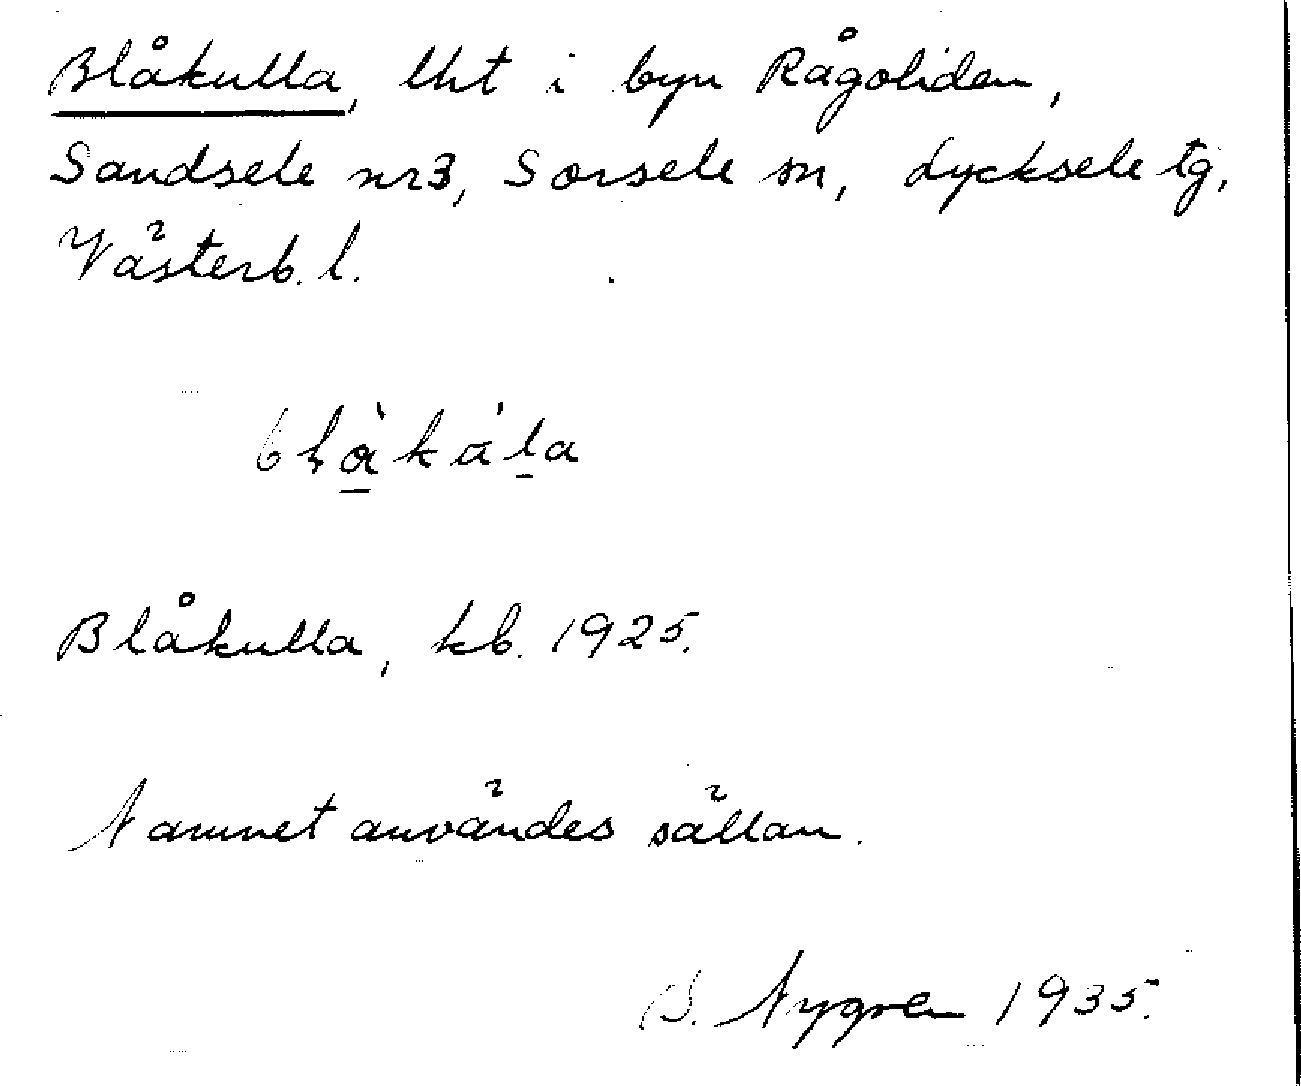 Blåkulla, lht i byn Rågoliden,
Sandsele nr3, Sorsele sn, Lycksele tg,
Västerb. l.
Blåkulla, kb. 1925.
Namnet användes sällan.
B. Nygren 1935.